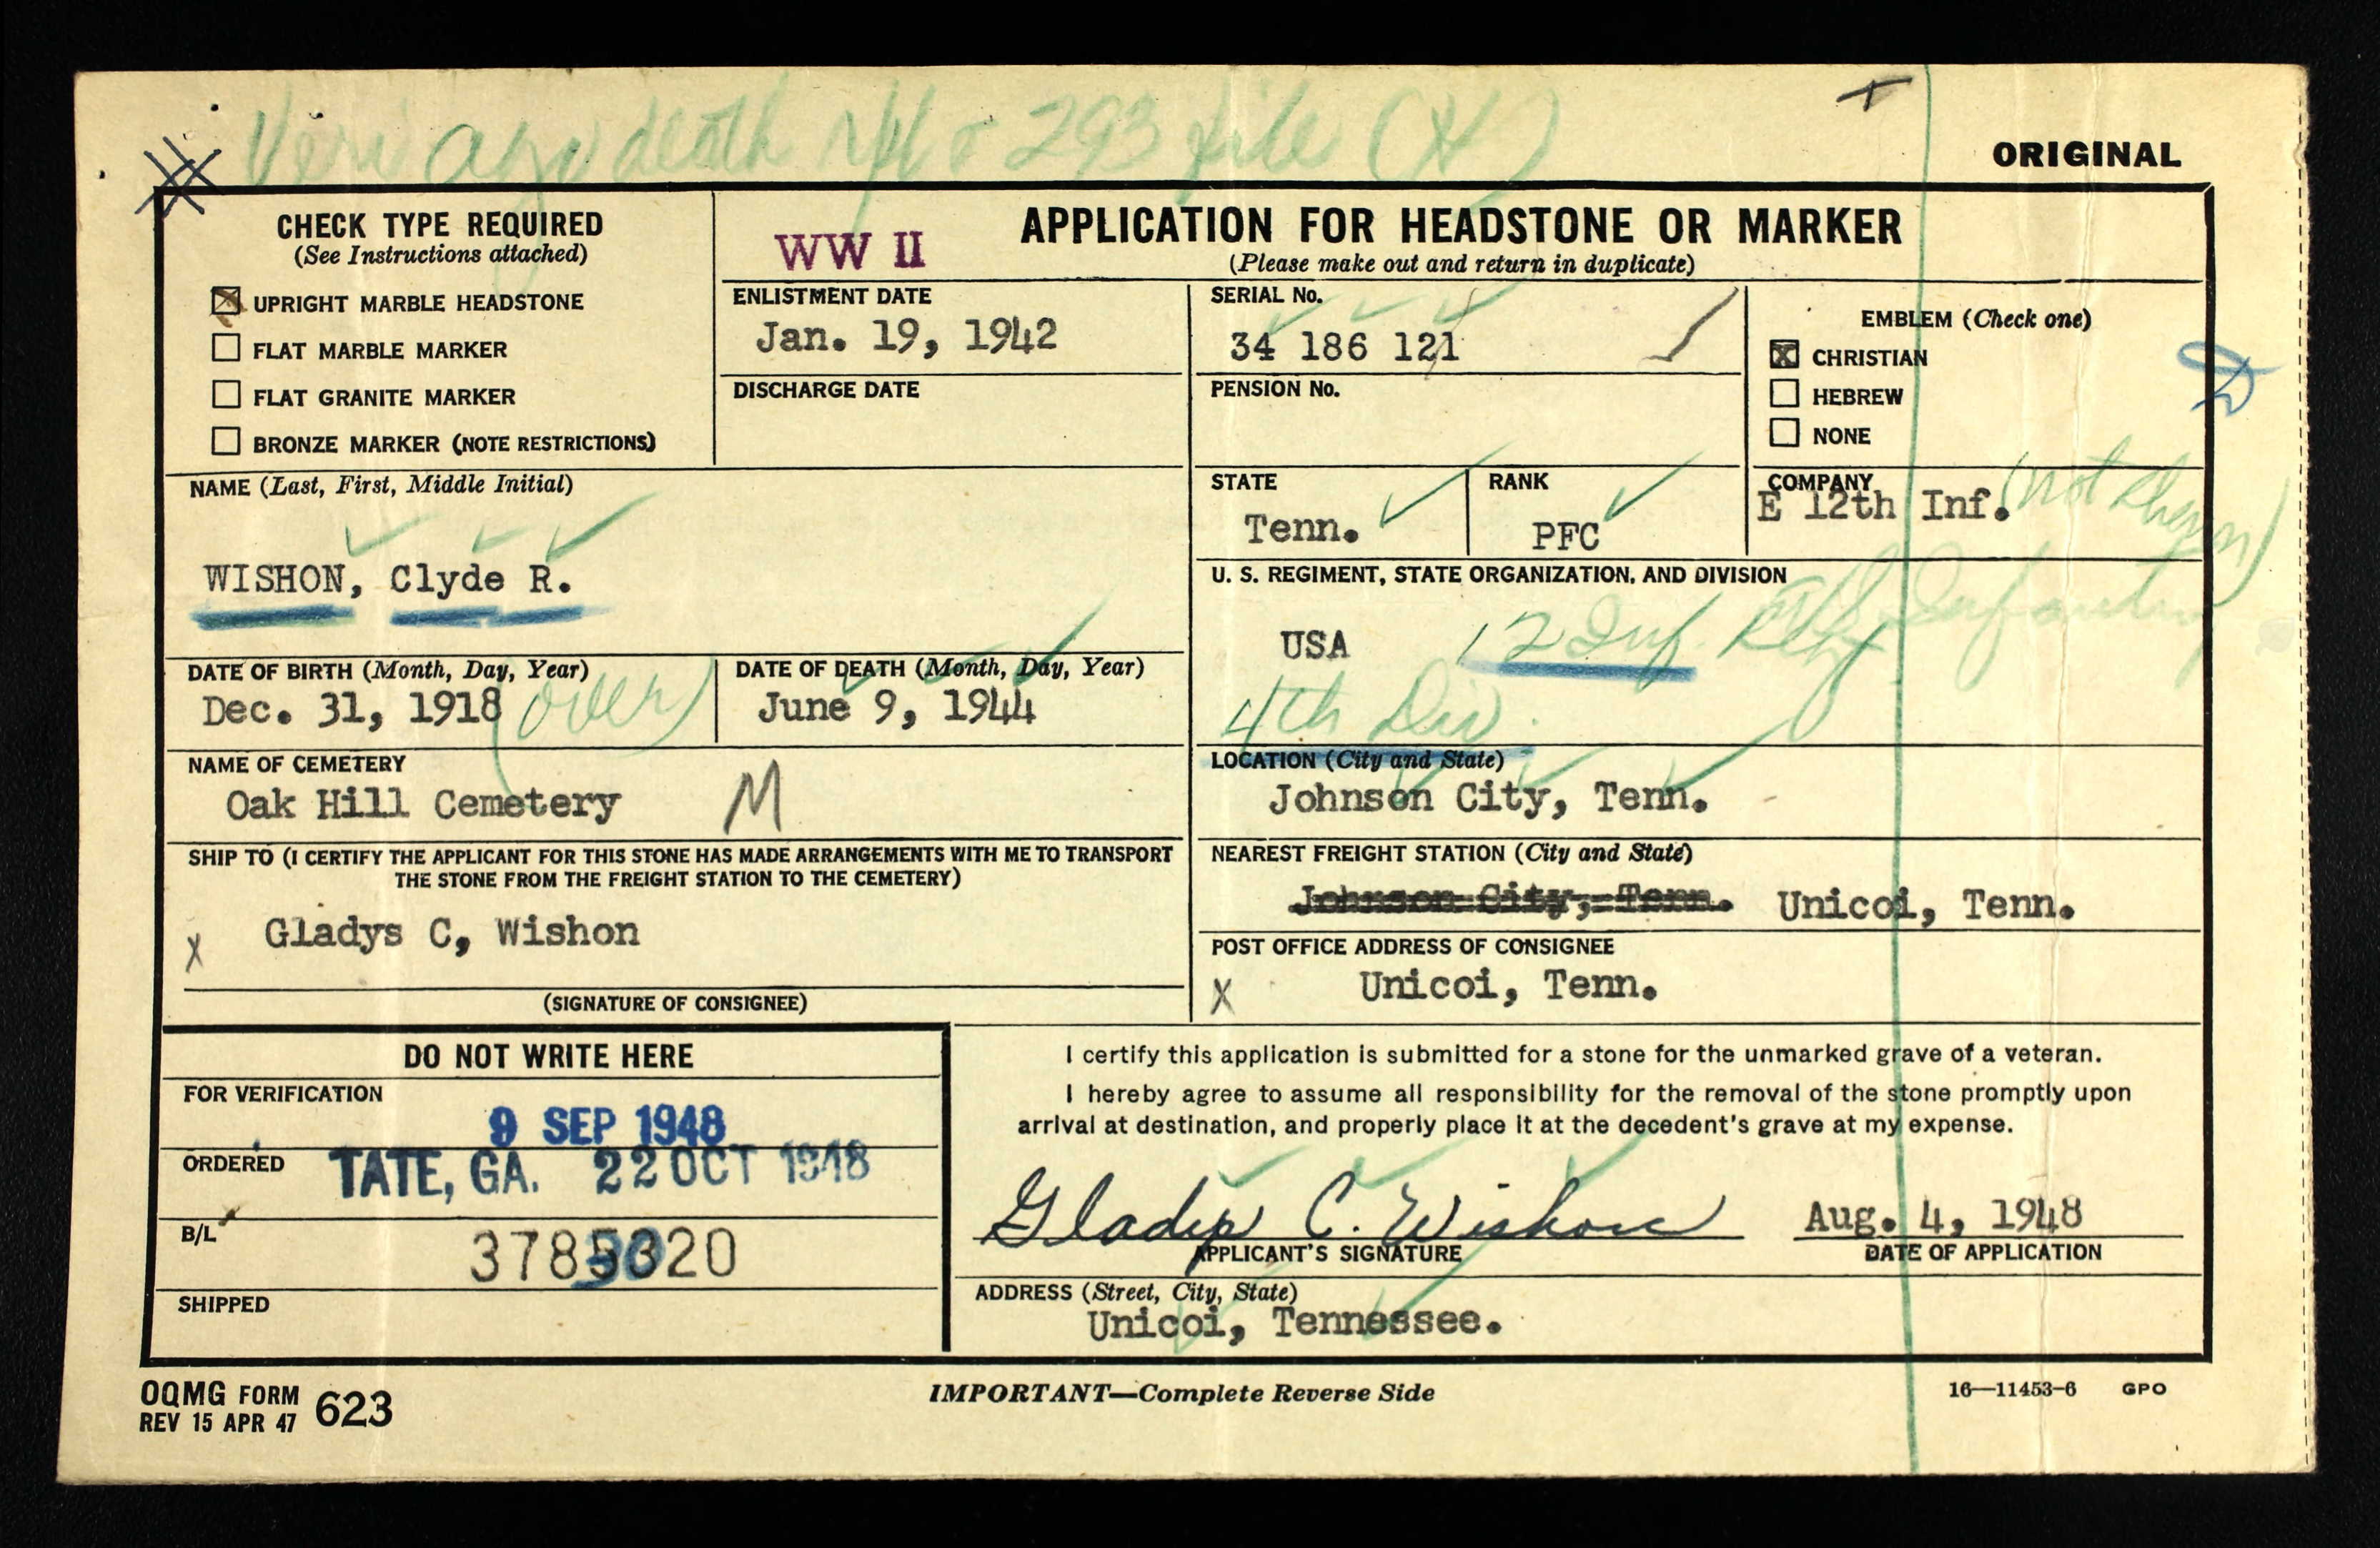 death 293 file (H)
ORIGINAL
CHECK TYPE REQUIRED
(See Instructions attached)
UPRIGHT MARBLE HEADSTONE
FLAT MARBLE MARKER
FLAT GRANITE MARKER
BRONZE MARKER (NOTE RESTRICTIONS)
WW II
APPLICATION FOR HEADSTONE OR MARKER
(Please make out and return in duplicate)
ENLISTMENT DATE
Jan. 19, 1942
DISCHARGE DATE
SERIAL No.
34 186 121
PENSION No.
EMBLEM (Check one)
CHRISTIAN
HEBREW
NONE
NAME (Last, First, Middle Initial)
WISHON, Clyde R.
STATE
Tenn.
RANK
PFC
COMPANY
E 12th Inf. (not shown)
U. S. REGIMENT, STATE ORGANIZATION, AND DIVISION
USA 12 Inf. Regt Infantry
4th Div.
DATE OF BIRTH (Month, Day, Year)
Dec. 31, 1918 (over)
DATE OF DEATH (Month, Day, Year)
June 9, 1944
NAME OF CEMETERY
Oak Hill Cemetery M
LOCATION (City and State)
Johnson City, Tenn.
SHIP TO (I CERTIFY THE APPLICANT FOR THIS STONE HAS MADE ARRANGEMENTS WITH ME TO TRANSPORT
THE STONE FROM THE FREIGHT STATION TO THE CEMETERY)
X Gladys C, Wishon
(SIGNATURE OF CONSIGNEE)
NEAREST FREIGHT STATION (City and State)
Johnson City, Tenn. Unicoi, Tenn.
POST OFFICE ADDRESS OF CONSIGNEE
X Unicoi, Tenn.
DO NOT WRITE HERE
FOR VERIFICATION
9 SEP 1948
ORDERED
TATE, GA. 22 OCT 1948
B/L
SHIPPED
I certify this application is submitted for a stone for the unmarked grave of a veteran.
I hereby agree to assume all responsibility for the removal of the stone promptly upon
arrival at destination, and properly place it at the decedent's grave at my expense.
Gladys C. Wishon
APPLICANT'S SIGNATURE
Aug. 4, 1948
DATE OF APPLICATION
ADDRESS (Street, City, State)
Unicoi, Tennessee.
OQMG FORM 623
REV 15 APR 47
IMPORTANT—Complete Reverse Side
16—11453-6 GPO